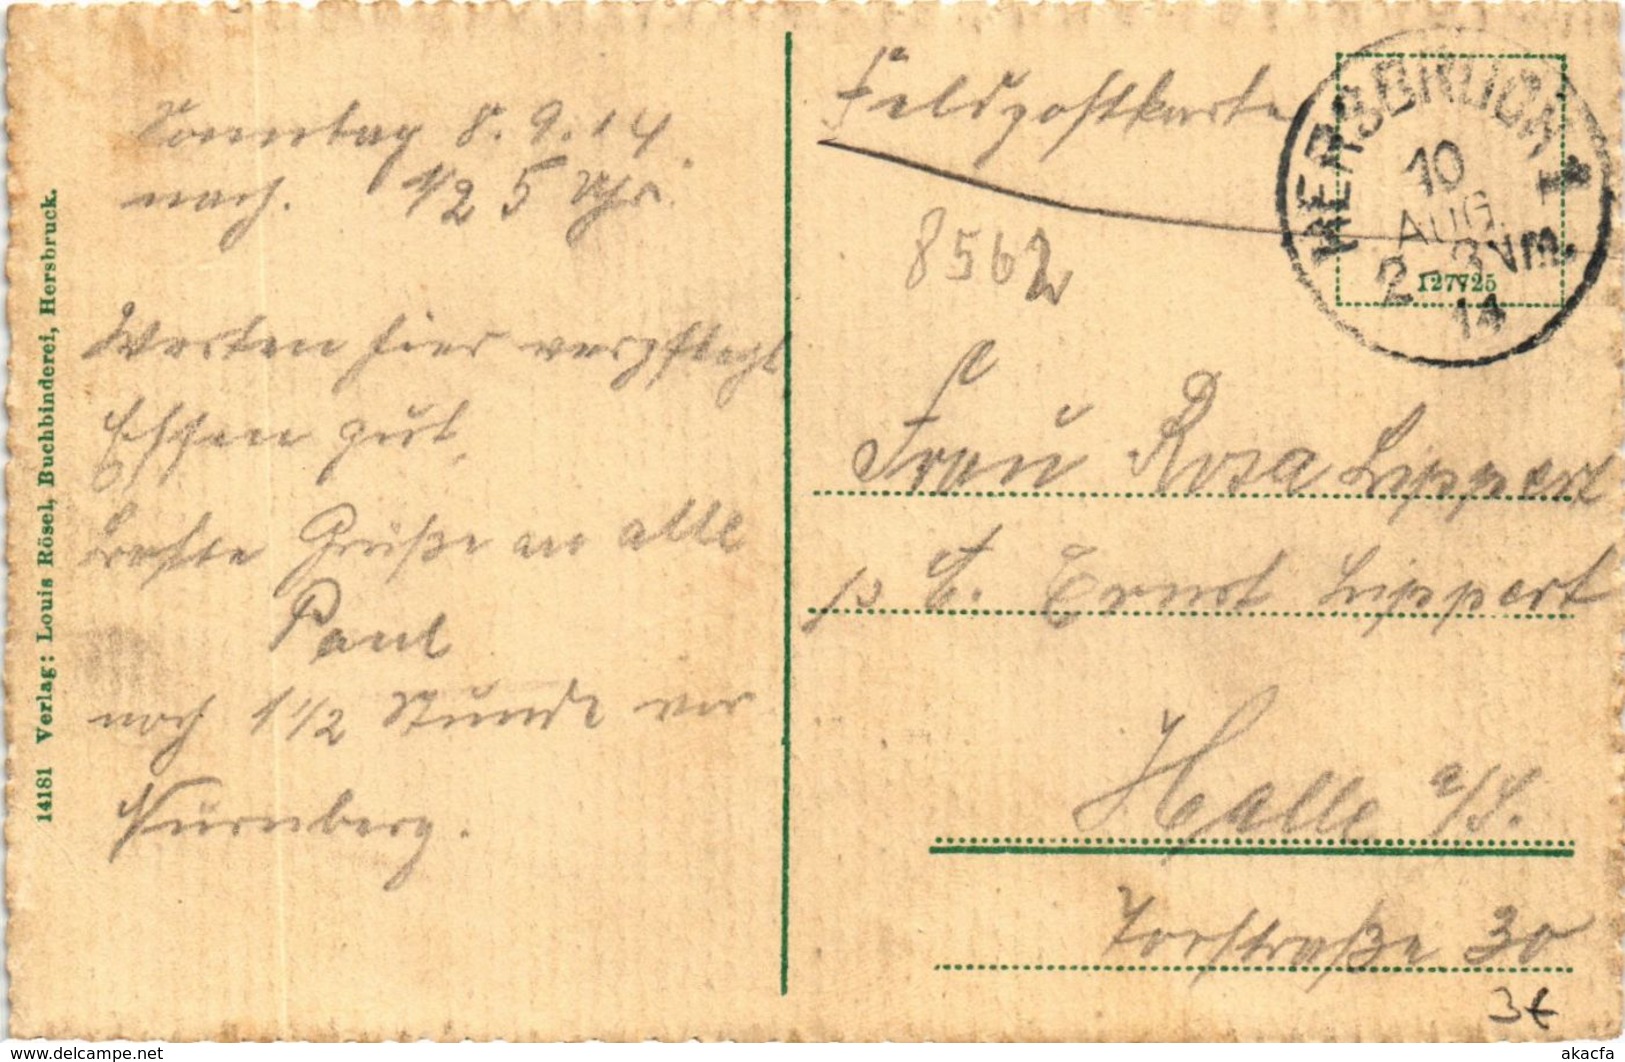 Sonntag 8.9.14.
nach. 1/2 5 Uhr.
Werden hier verpflegt
Essen gut.
beste Grüße an alle
Paul
noch 1 1/2 Stunde vor
Nürnberg.
14181 Verlag: Louis Rösel, Buchbinderei, Hersbruck.
Feldpostkarte
HERSBRUCK 1
10
AUG.
2-3Vm.
14
127725
8562
Frau Rosa Lippert
Ernst Lippert
Halle a/S.
Torstraße 30
3€
akacfa
www.delcampe.net